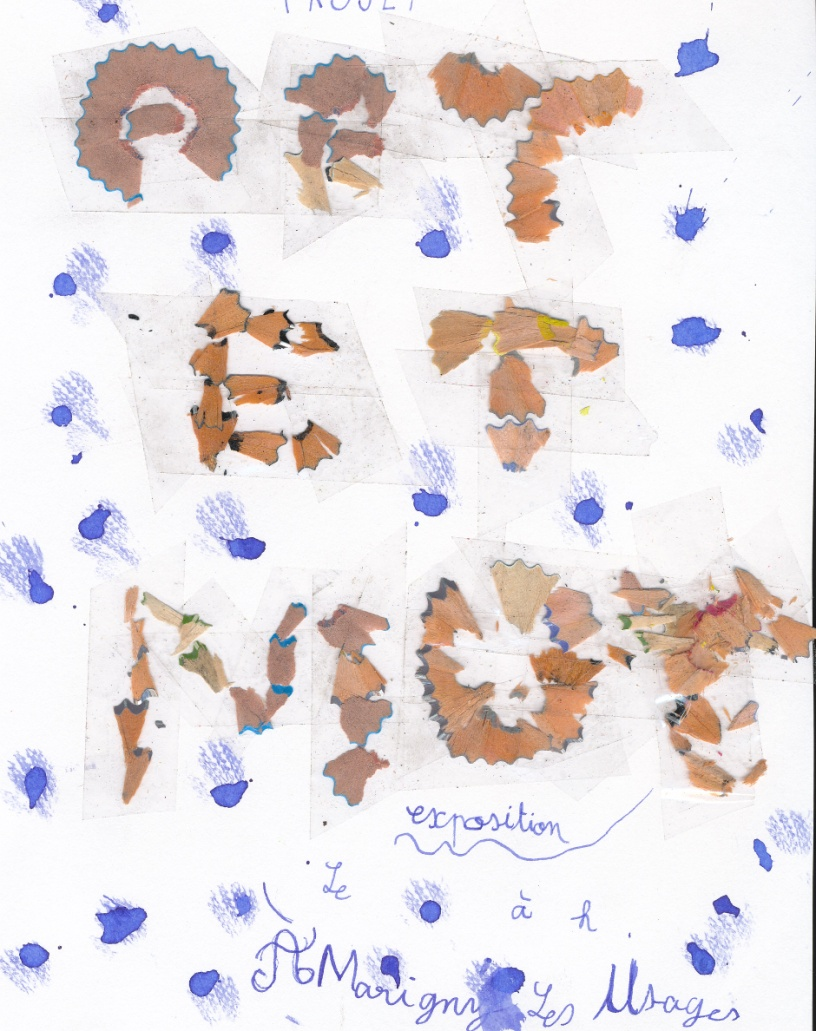 ART
ET
MOT
exposition
Le à h
A Marigny Les Usages